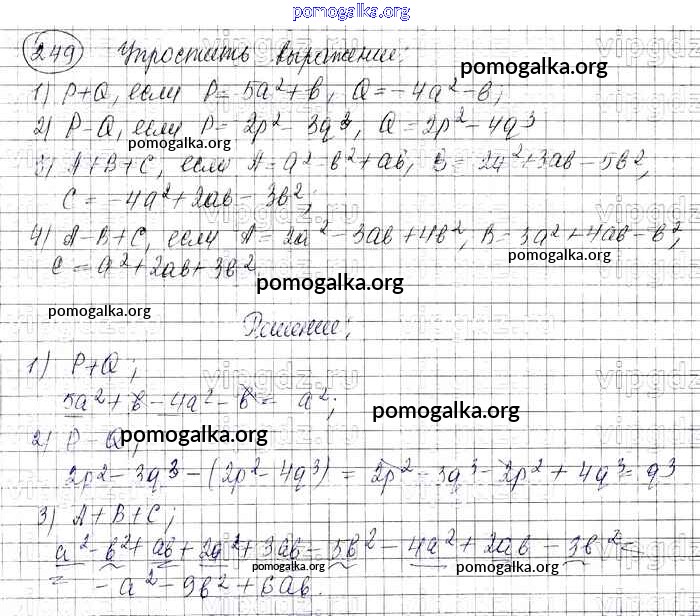 pomogalka.org
249 Упростить выражение:
1) P+Q, если P= 5a²+b, Q=-4a²-b;
pomogalka.org
2) P-Q, если P= 2p²- 3q³, Q=2p²-4q³
pomogalka.org
3) A+B+C, если A= a²-b²+ab, B= 2a²+3ab-5b²,
C= -4a²+2ab-3b²;
4) A-B+C, если A= 2a²-3ab+4b², B=3a²+4ab-b²,
pomogalka.org
C= a²+2ab+3b².
pomogalka.org
pomogalka.org
Решение:
1) P+Q;
vipgdz.ru
5a²+b-4a²-b= a²;
pomogalka.org
2) P-Q;
pomogalka.org
2p²-3q³-(2p²-4q³) = 2p²-3q³-2p²+4q³= q³
3) A+B+C;
a²-b²+ab+2a²+3ab-5b²-4a²+2ab-3b²=
pomogalka.org
pomogalka.org
= -a²-9b²+6ab.